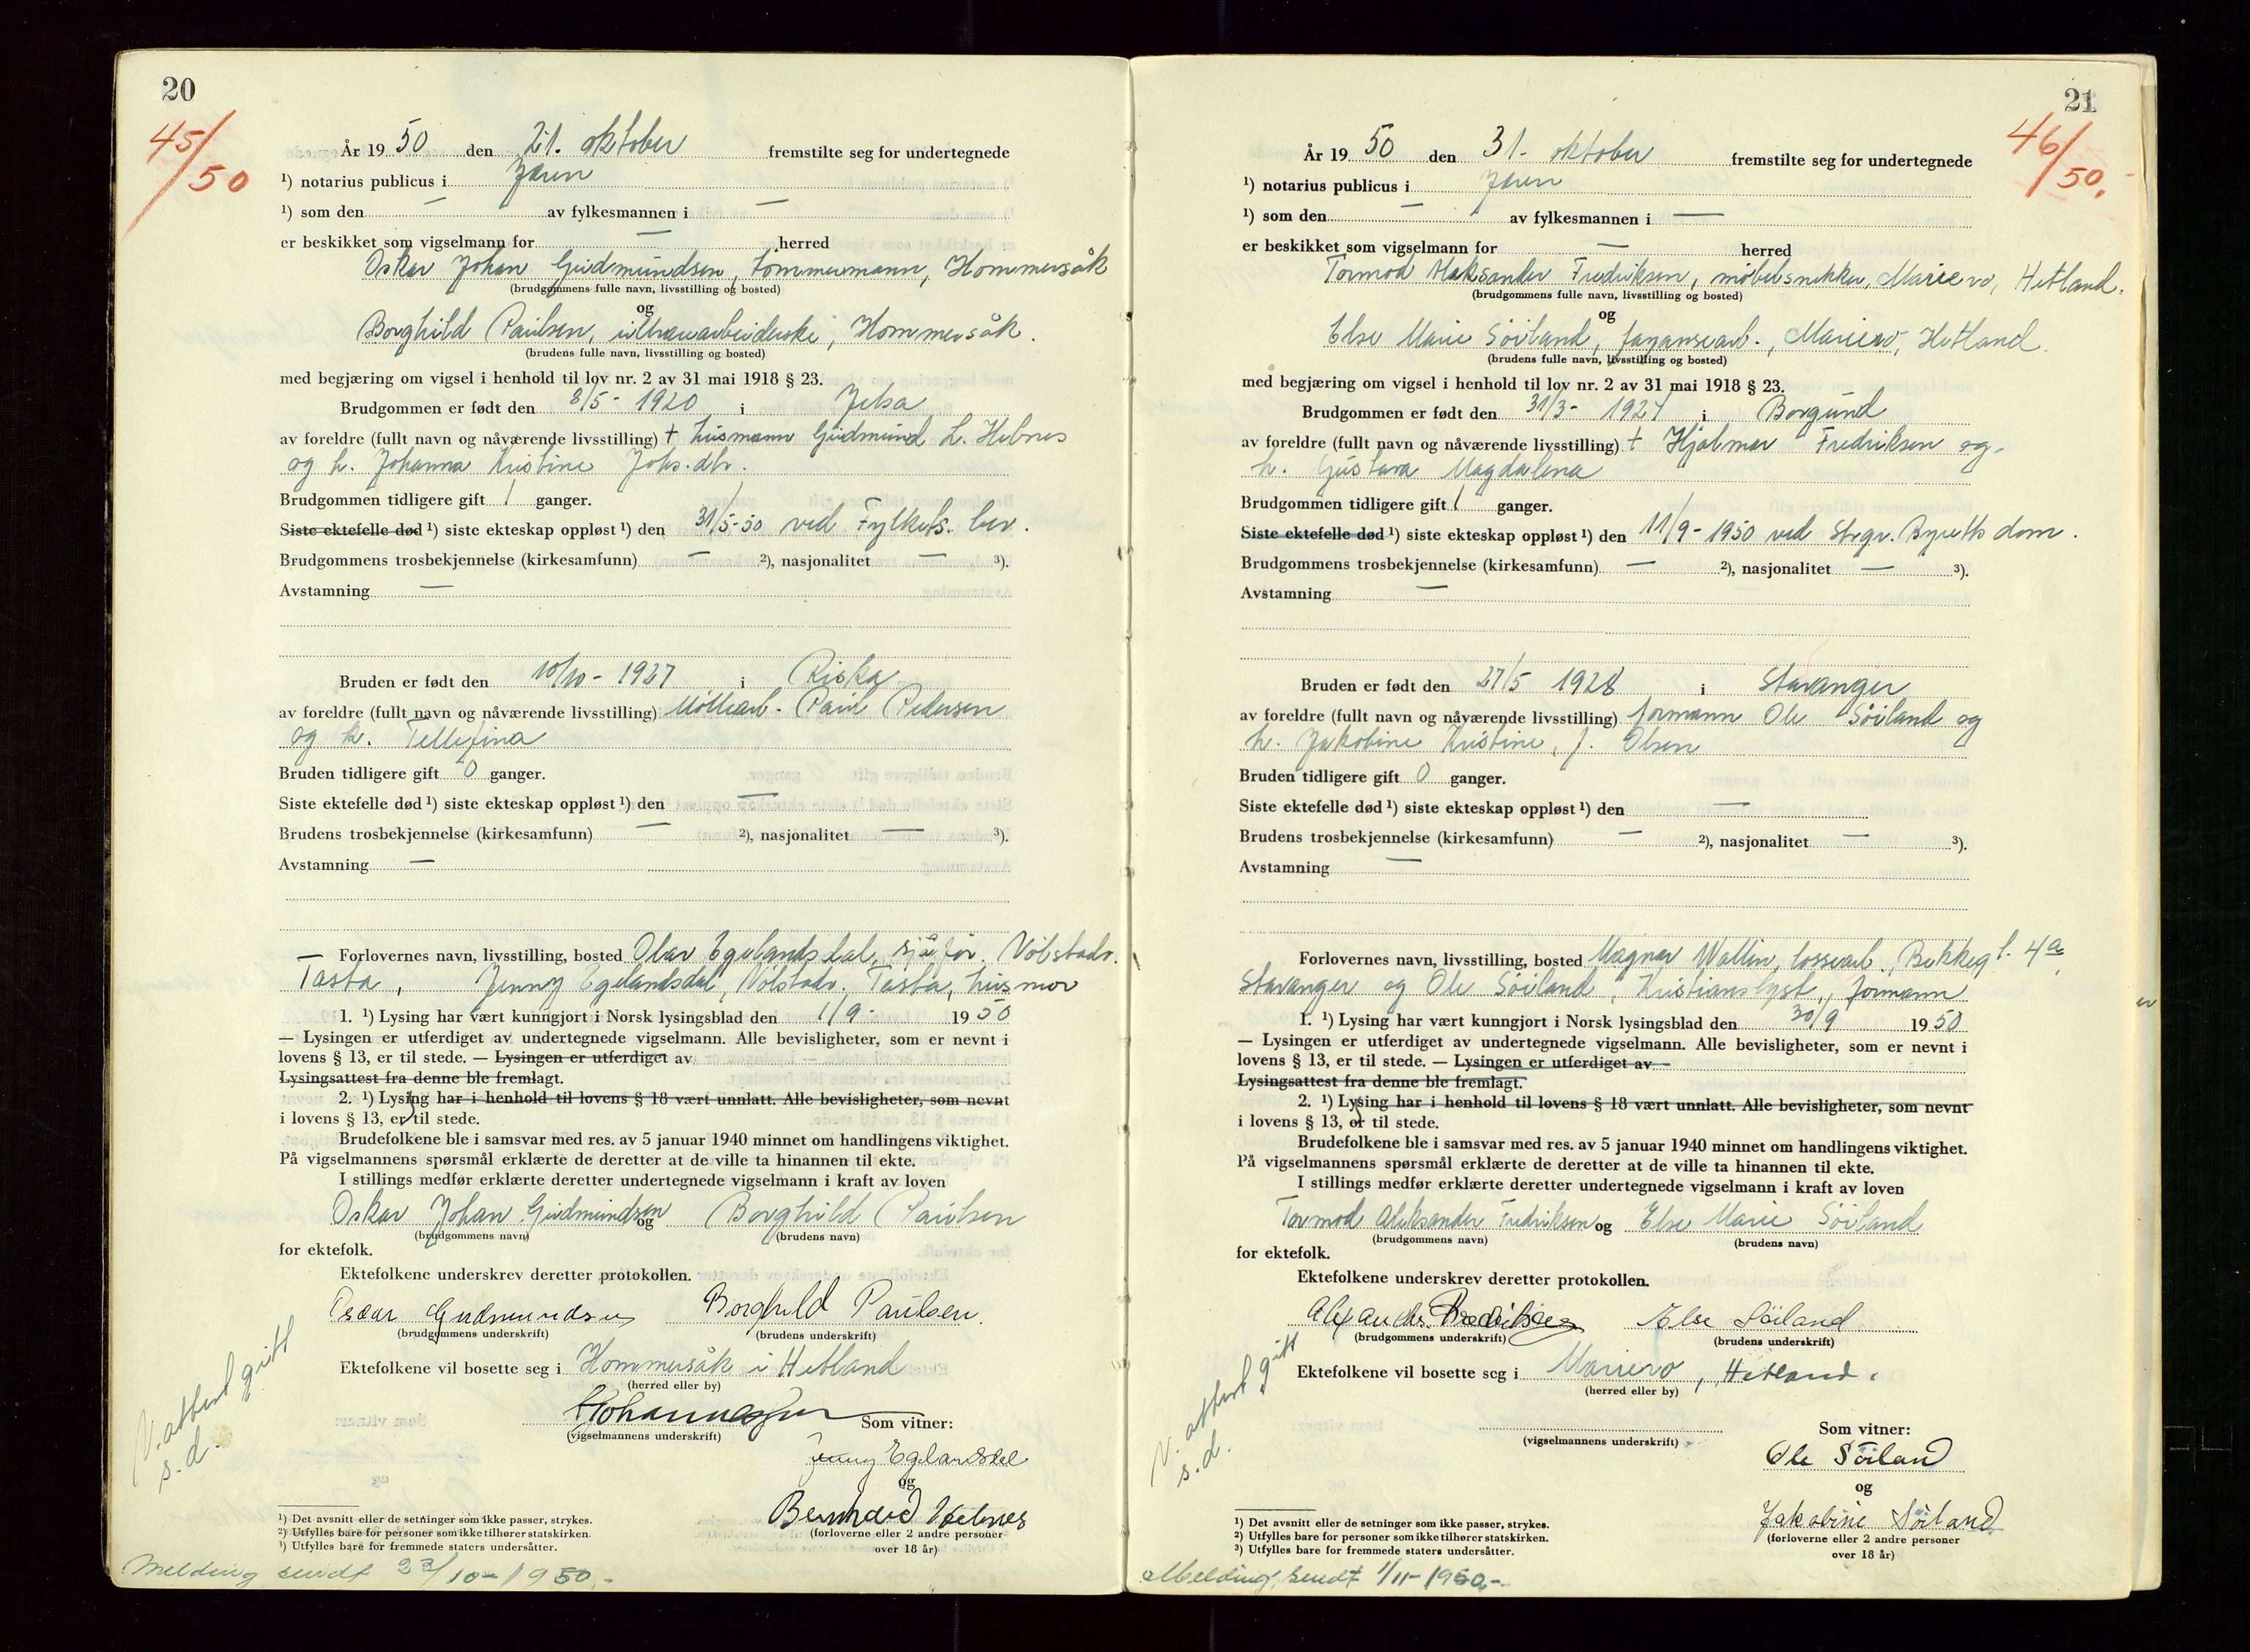 20
45/50
År 1950 den 21. oktober fremstilte seg for undertegnede
¹) notarius publicus i Jæren
¹) som den — av fylkesmannen i —
er beskikket som vigselmann for — herred
Oskar Johan Gudmundsen, tømmermann, Hommersåk
(brudgommens fulle navn, livsstilling og bosted)
og
Borghild Paulsen, ullvarearbeiderske, Hommersåk.
(brudens fulle navn, livsstilling og bosted)
med begjæring om vigsel i henhold til lov nr. 2 av 31 mai 1918 § 23.
Brudgommen er født den 8/5 - 1920 i Jelsa
av foreldre (fullt navn og nåværende livsstilling) + husmann Gudmund L. Hebnes
og h. Johanna Kristine Johs.dtr.
Brudgommen tidligere gift 1 ganger.
Siste ektefelle død ¹) siste ekteskap oppløst ¹) den 31/5-50 ved Fylkets. bev.
Brudgommens trosbekjennelse (kirkesamfunn) — ²), nasjonalitet — ³).
Avstamning —
Bruden er født den 10/10 - 1927 i Riska
av foreldre (fullt navn og nåværende livsstilling) Møllearb. Paul Pedersen
og h. Tellefina
Bruden tidligere gift 0 ganger.
Siste ektefelle død ¹) siste ekteskap oppløst ¹) den —
Brudens trosbekjennelse (kirkesamfunn) — ²), nasjonalitet — ³).
Avstamning —
Forlovernes navn, livsstilling, bosted Olav Egelandsdal, sjåfør. Vølstadv.
Tasta, Jenny Egelandsdal, Vølstadv., Tasta, husmor
1. ¹) Lysing har vært kunngjort i Norsk lysingsblad den 1/9 - 1950
— Lysingen er utferdiget av undertegnede vigselmann. Alle bevisligheter, som er nevnt i
lovens § 13, er til stede. — Lysingen er utferdiget av
Lysingsattest fra denne ble fremlagt.
2. ¹) Lysing har i henhold til lovens § 18 vært unnlatt. Alle bevisligheter, som nevnt
i lovens § 13, er til stede.
Brudefolkene ble i samsvar med res. av 5 januar 1940 minnet om handlingens viktighet.
På vigselmannens spørsmål erklærte de deretter at de ville ta hinannen til ekte.
I stillings medfør erklærte deretter undertegnede vigselmann i kraft av loven
Oskar Johan Gudmundsen og Borghild Paulsen
(brudgommens navn) (brudens navn)
for ektefolk.
Ektefolkene underskrev deretter protokollen.
Oscar Gudmundsen Borghild Paulsen.
(brudgommens underskrift) (brudens underskrift)
Ektefolkene vil bosette seg i Hommersåk i Hetland
(herred eller by)
V. attest gitt
s. d.
Johannessen Som vitner:
(vigselmannens underskrift)
Jenny Egelandsdal
og
Bernhard Hebnes
(forloverne eller 2 andre personer
over 18 år)
¹) Det avsnitt eller de setninger som ikke passer, strykes.
²) Utfylles bare for personer som ikke tilhører statskirken.
³) Utfylles bare for fremmede staters undersåtter.
Melding sendt 23/10-1950.-
21
46/50.
År 1950 den 31. oktober fremstilte seg for undertegnede
¹) notarius publicus i Jæren
¹) som den — av fylkesmannen i —
er beskikket som vigselmann for — herred
Tormod Aleksander Fredriksen, møbelsnekker, Mariero, Hetland.
(brudgommens fulle navn, livsstilling og bosted)
og
Else Marie Söiland, fayansearb., Mariero, Hetland.
(brudens fulle navn, livsstilling og bosted)
med begjæring om vigsel i henhold til lov nr. 2 av 31 mai 1918 § 23.
Brudgommen er født den 31/3 - 1927 i Borgund
av foreldre (fullt navn og nåværende livsstilling) + Hjalmar Fredriksen og
h. Gustava Magdalena
Brudgommen tidligere gift 1 ganger.
Siste ektefelle død ¹) siste ekteskap oppløst ¹) den 11/9 - 1950 ved Stvgr. Byretts dom.
Brudgommens trosbekjennelse (kirkesamfunn) — ²), nasjonalitet — ³).
Avstamning —
Bruden er født den 27/5 1928 i Stavanger
av foreldre (fullt navn og nåværende livsstilling) formann Ole Söiland og
h. Jakobine Kristine, f. Olsen
Bruden tidligere gift 0 ganger.
Siste ektefelle død ¹) siste ekteskap oppløst ¹) den —
Brudens trosbekjennelse (kirkesamfunn) — ²), nasjonalitet — ³).
Avstamning —
Forlovernes navn, livsstilling, bosted Magnar Wallin, lossearb., Bekkegt. 4a
Stavanger og Ole Söiland, Kristianslyst, formann
1. ¹) Lysing har vært kunngjort i Norsk lysingsblad den 30/9 1950
— Lysingen er utferdiget av undertegnede vigselmann. Alle bevisligheter, som er nevnt i
lovens § 13, er til stede. — Lysingen er utferdiget av
Lysingsattest fra denne ble fremlagt.
2. ¹) Lysing har i henhold til lovens § 18 vært unnlatt. Alle bevisligheter, som nevnt
i lovens § 13, er til stede.
Brudefolkene ble i samsvar med res. av 5 januar 1940 minnet om handlingens viktighet.
På vigselmannens spørsmål erklærte de deretter at de ville ta hinannen til ekte.
I stillings medfør erklærte deretter undertegnede vigselmann i kraft av loven
Tormod Aleksander Fredriksen og Else Marie Söiland
(brudgommens navn) (brudens navn)
for ektefolk.
Ektefolkene underskrev deretter protokollen.
Alexander Fredriksen Else Söiland
(brudgommens underskrift) (brudens underskrift)
Ektefolkene vil bosette seg i Mariero, Hetland.
(herred eller by)
V. attest gitt
s. d.
Som vitner:
(vigselmannens underskrift)
Ole Söiland
og
Jakobine Söiland
(forloverne eller 2 andre personer
over 18 år)
¹) Det avsnitt eller de setninger som ikke passer, strykes.
²) Utfylles bare for personer som ikke tilhører statskirken.
³) Utfylles bare for fremmede staters undersåtter.
Melding sendt 1/11-1950.-